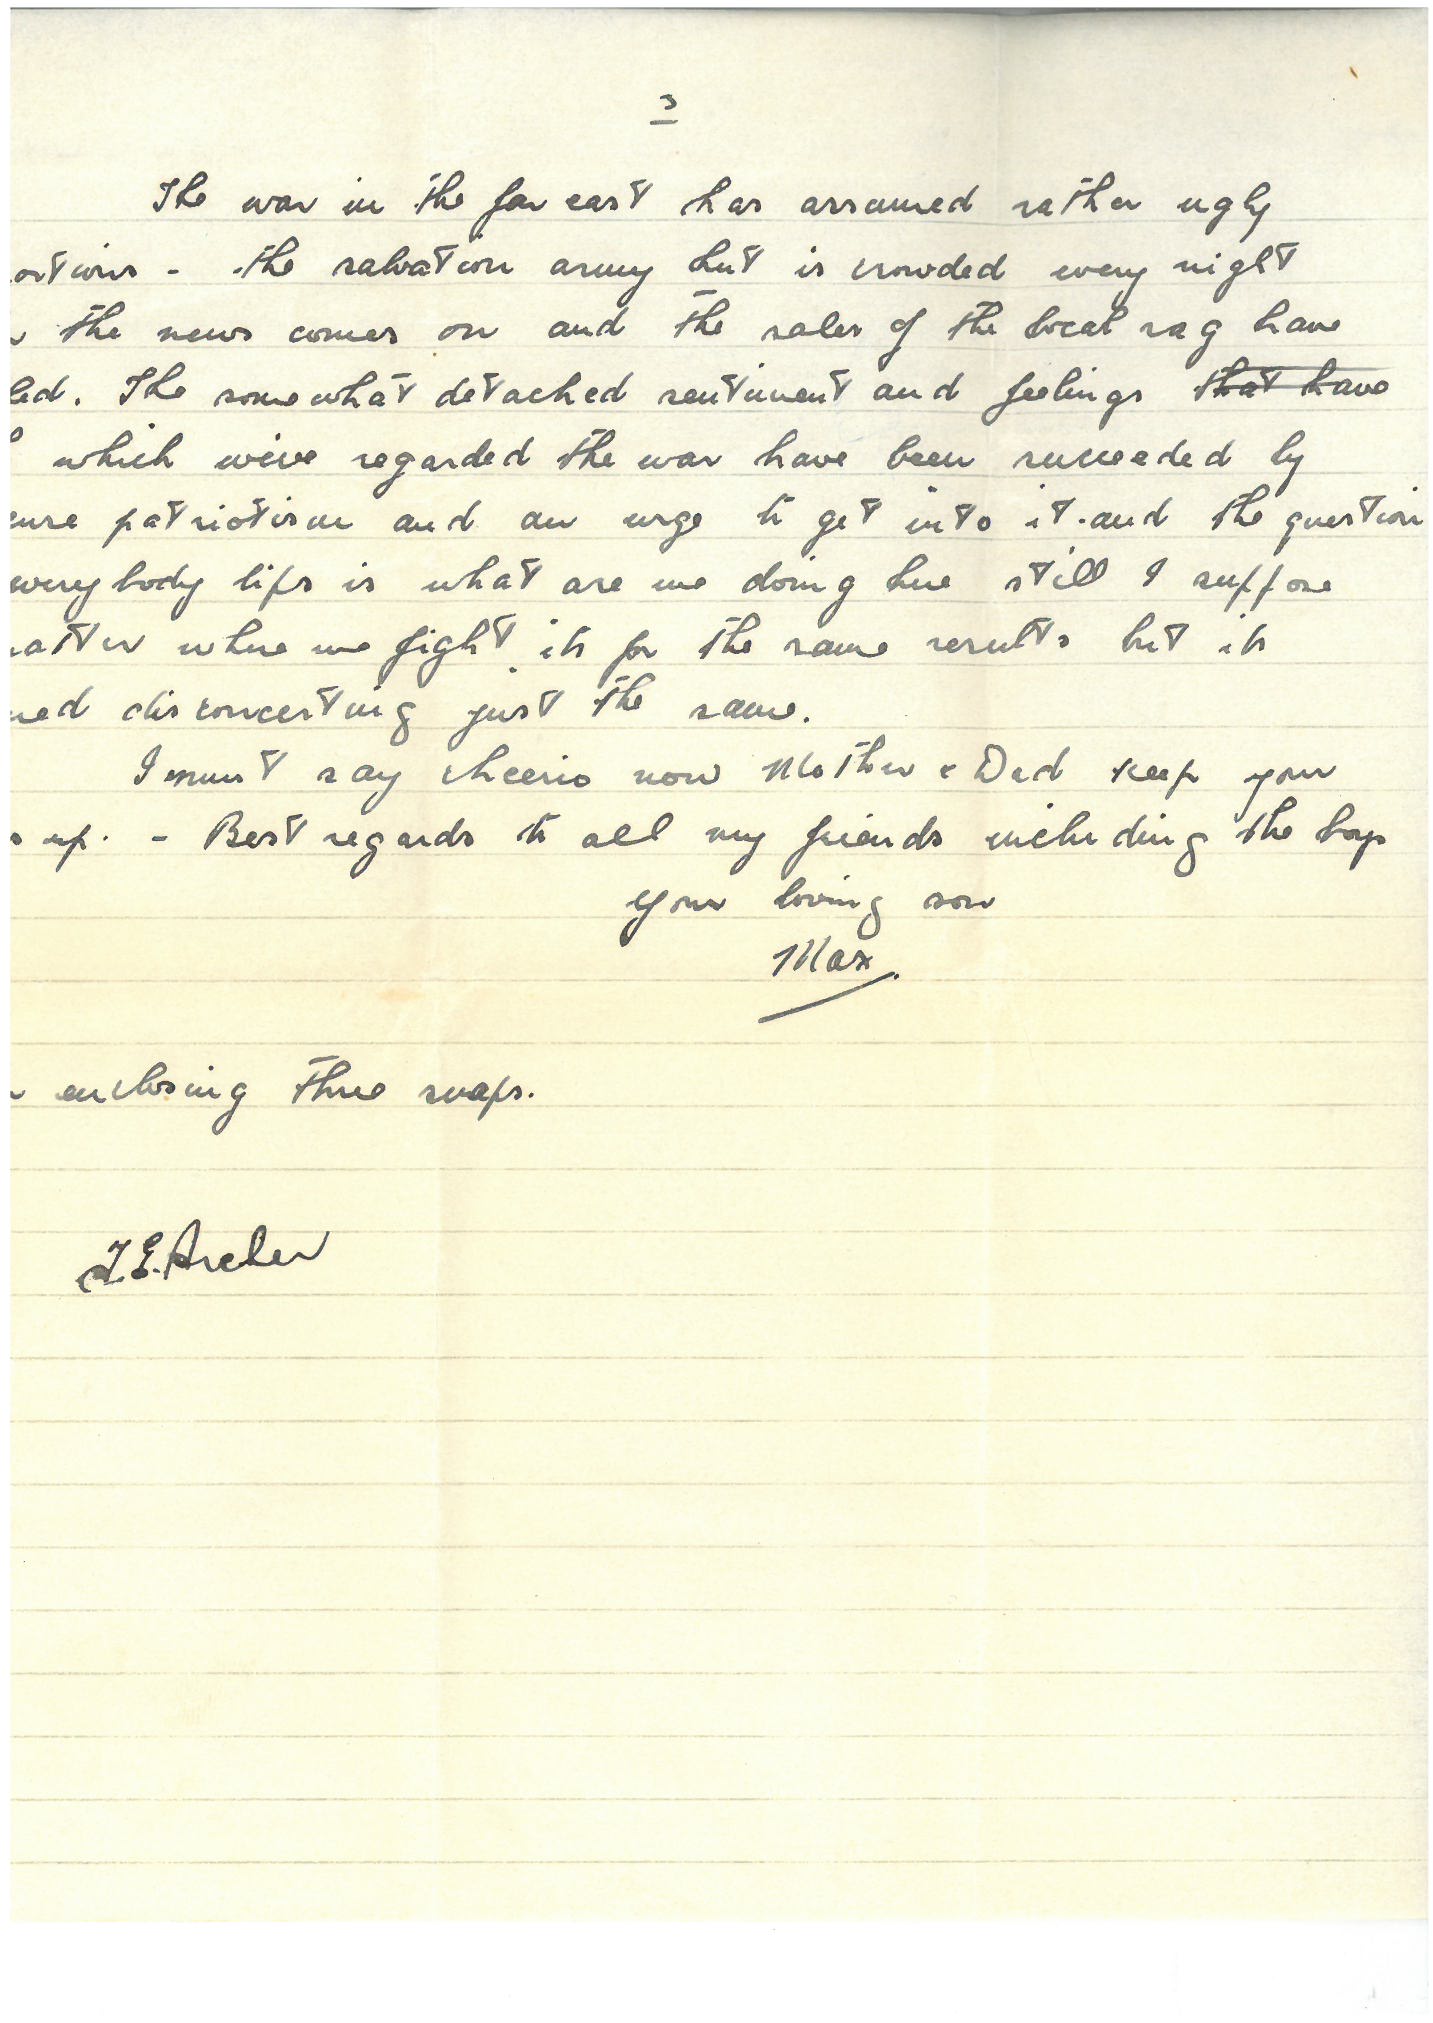 3
The war in the far east has assumed rather ugly
ortions - the salvation army hut is crowded every night
the news comes on and the sales of the local rag have
led. The somewhat detached sentiment and feelings that have
which we've regarded the war have been succeeded by
ense patriotism and an urge to get into it. and the question
everybody lips is what are we doing here still I suppose
atter where we fight its for the same results but its
ned disconcerting just the same.
I must say cheerio now Mother & Dad keep your
s up. - Best regards to all my friends including the boys
your loving son
Max.
enclosing three snaps.
T. E. Archer